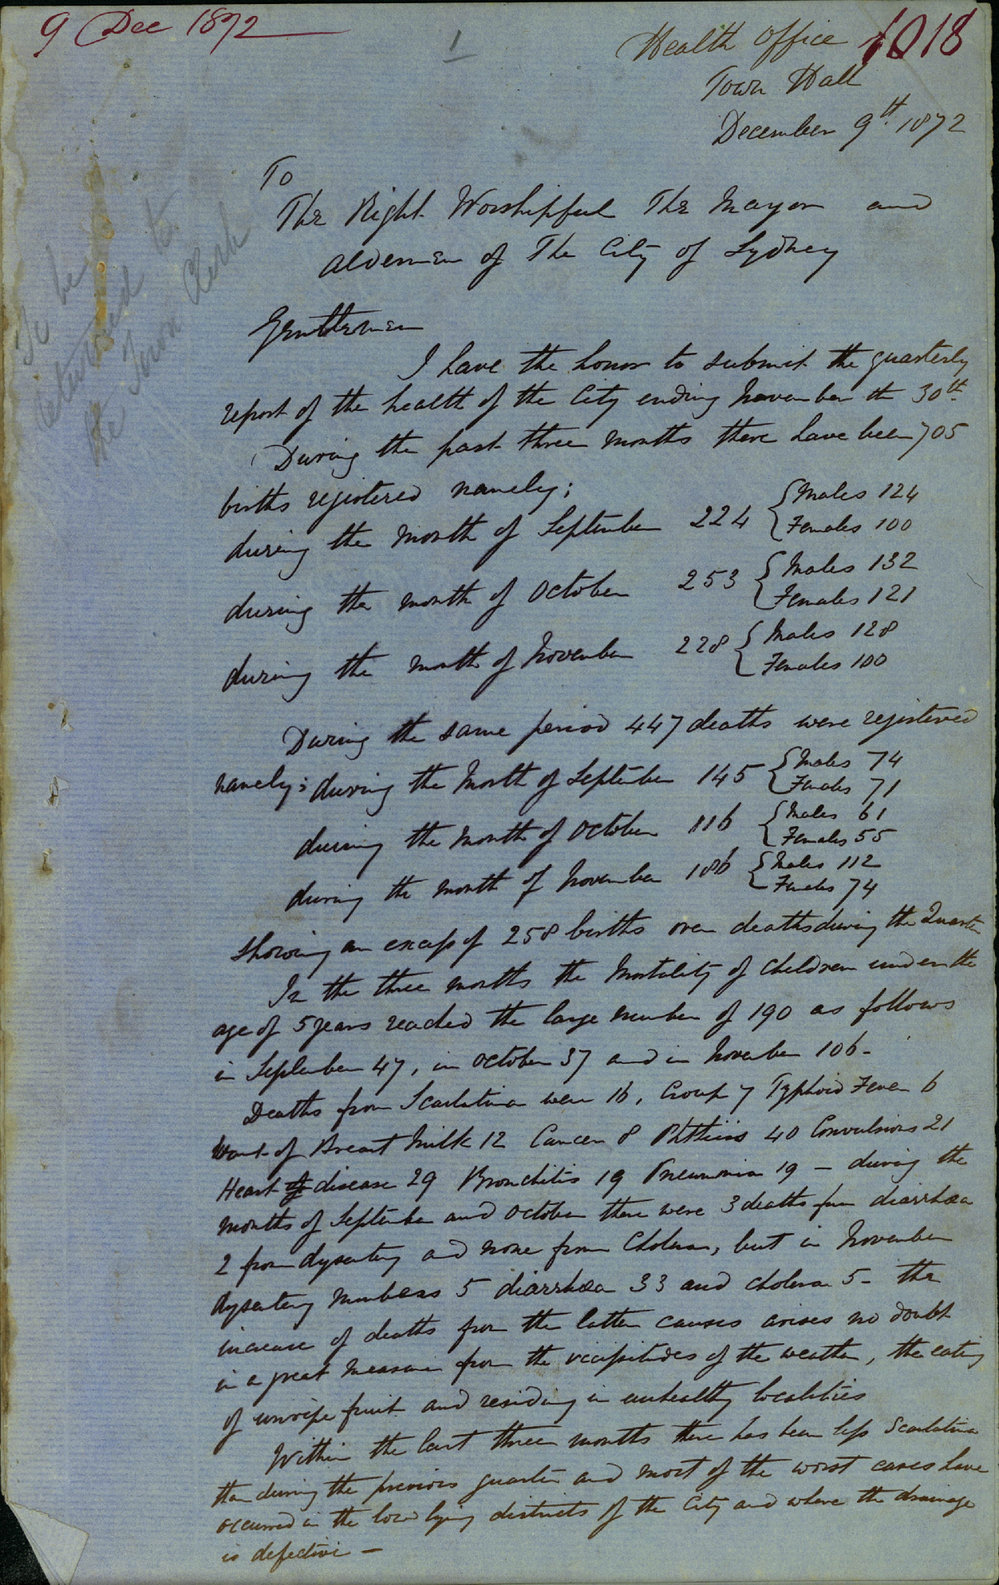 9 Dec 1872
1
1018
Health Office
Town Hall
December 9th. 1872
To be
returned to
the Town Clerk
To
The Right Worshipful The Mayor and
Aldermen of The City of Sydney
Gentlemen
I have the honor to submit the quarterly
report of the health of the City ending November the 30th.
During the past three months there have been 705
births registered namely;
during the month of September 224 { Males 124
Females 100
during the month of October 253 { Males 132
Females 121
during the month of November 228 { Males 128
Females 100
During the same period 447 deaths were registered
namely; during the Month of September 145 { Males 74
Females 71
during the month of October 116 { Males 61
Females 55
during the month of November 186 { Males 112
Females 74
showing an excess of 258 births over deaths during the Quarter
In the three months the Mortality of children under the
age of 5 years reached the large number of 190 as follows
in September 47, in October 37 and in November 106 -
Deaths from Scarlatina were 16, Croup 7 Typhoid Fever 6
Want of Breast Milk 12 Cancer 8 Phthisis 40 Convulsions 21
Heart of disease 29 Bronchitis 19 Pneumonia 19 - during the
months of September and October there were 3 deaths from diarrhœa
2 from dysentery and none from Cholera, but in November
dysentery numbers 5 diarrhœa 33 and cholera 5 - the
increase of deaths from the latter causes arises no doubt
in a great measure from the vicissitudes of the weather, the eating
of unripe fruit and residing in unhealthy localities
Within the last three months there has been less Scarlatina
than during the previous quarter and most of the worst cases have
occurred in the low lying districts of the City and where the drainage
is defective -